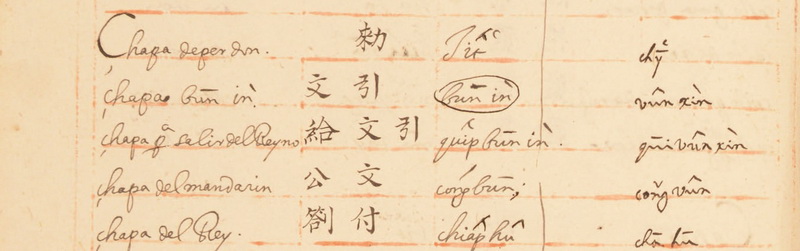 Chapa de per don. 勑 Tît chỹ
chapa būn ìn. 文引 būn ìn vûn xìn
chapa q̃ salir del Reyno 給文引 quîp būn ìn. quī vûn xìn
chapa del mandarin 公文 cong būn; coñg vûn
chapa del Rey. 劄付 chiap hû chā hū